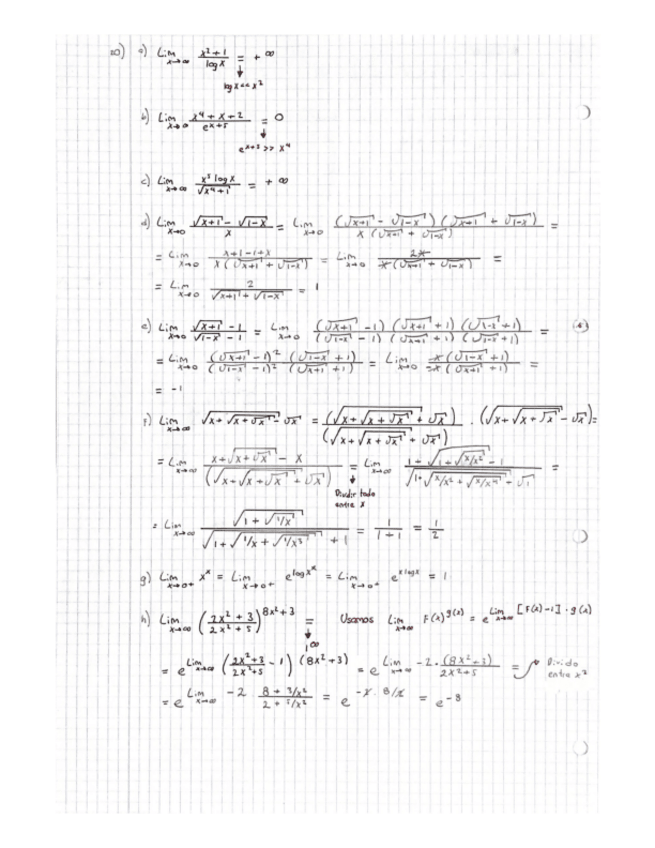 20) a) Lim x→∞ (x²+1)/(log x) = +∞
↓
log x << x²
b) Lim x→∞ (x⁴+x+2)/(e^(x+5)) = 0
↓
e^(x+5) >> x⁴
c) Lim x→∞ (x³ log x)/(√(x⁴+1)) = +∞
d) Lim x→0 (√(x+1) - √(1-x))/x = Lim x→0 ((√(x+1) - √(1-x)) (√(x+1) + √(1-x)))/(x (√(x+1) + √(1-x))) =
= Lim x→0 (x+1-1+x)/(x (√(x+1) + √(1-x))) = Lim x→0 (2x)/(x (√(x+1) + √(1-x))) =
= Lim x→0 2/(√(x+1) + √(1-x)) = 1
e) Lim x→0 (√(x+1) - 1)/(√(1-x) - 1) = Lim x→0 ((√(x+1) - 1) (√(x+1) + 1) (√(1-x) + 1))/((√(1-x) - 1) (√(x+1) + 1) (√(1-x) + 1)) =
= Lim x→0 ((√(x+1) - 1)² (√(1-x) + 1))/((√(1-x) - 1)² (√(x+1) + 1)) = Lim x→0 (x (√(1-x) + 1))/(-x (√(x+1) + 1)) =
= -1
f) Lim x→∞ √(x+√(x+√x)) - √x = (√(x+√(x+√x)) + √x)/(√(x+√(x+√x)) + √x) · (√(x+√(x+√x)) - √x) =
= Lim x→∞ (x+√(x+√x) - x)/(√(x+√(x+√x)) + √x) = Lim x→∞ (1+√(1+√(x/x²)) - 1)/(√(1+√(x/x²+√(x/x⁴))) + √1) =
↓
Dividir todo
entre x
= Lim x→∞ √(1+√(1/x))/(√(1+√(1/x+√(1/x³))) + 1) = 1/(1+1) = 1/2
g) Lim x→0+ x^x = Lim x→0+ e^(log x^x) = Lim x→0+ e^(x log x) = 1
h) Lim x→∞ ((2x²+3)/(2x²+5))^(8x²+3) = Usamos Lim x→∞ F(x)^(g(x)) = e^(Lim x→∞ [F(x)-1]·g(x))
↓
1^∞
= e^(Lim x→∞ ((2x²+3)/(2x²+5) - 1) (8x²+3)) = e^(Lim x→∞ (-2·(8x²+3))/(2x²+5)) = Divido
entre x²
= e^(Lim x→∞ -2 (8+3/x²)/(2+5/x²)) = e^(-2·8/2) = e^(-8)